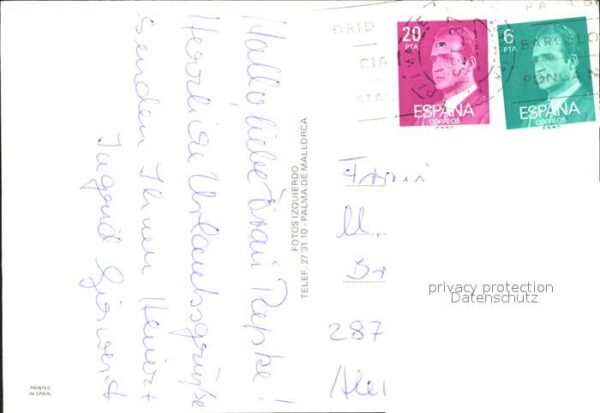 Hallo, liebe Frau Repke!
Herzliche Urlaubsgrüße
senden Ihnen Heiner +
Ingrid
FOTOS IZQUIERDO
TELEF. 27 31 10 - PALMA DE MALLORCA
PRINTED
IN SPAIN
20
PTA
ESPAÑA
CORREOS
6
PTA
ESPAÑA
CORREOS
BARCELO
Frau
M.
Br
287
privacy protection
Datenschutz